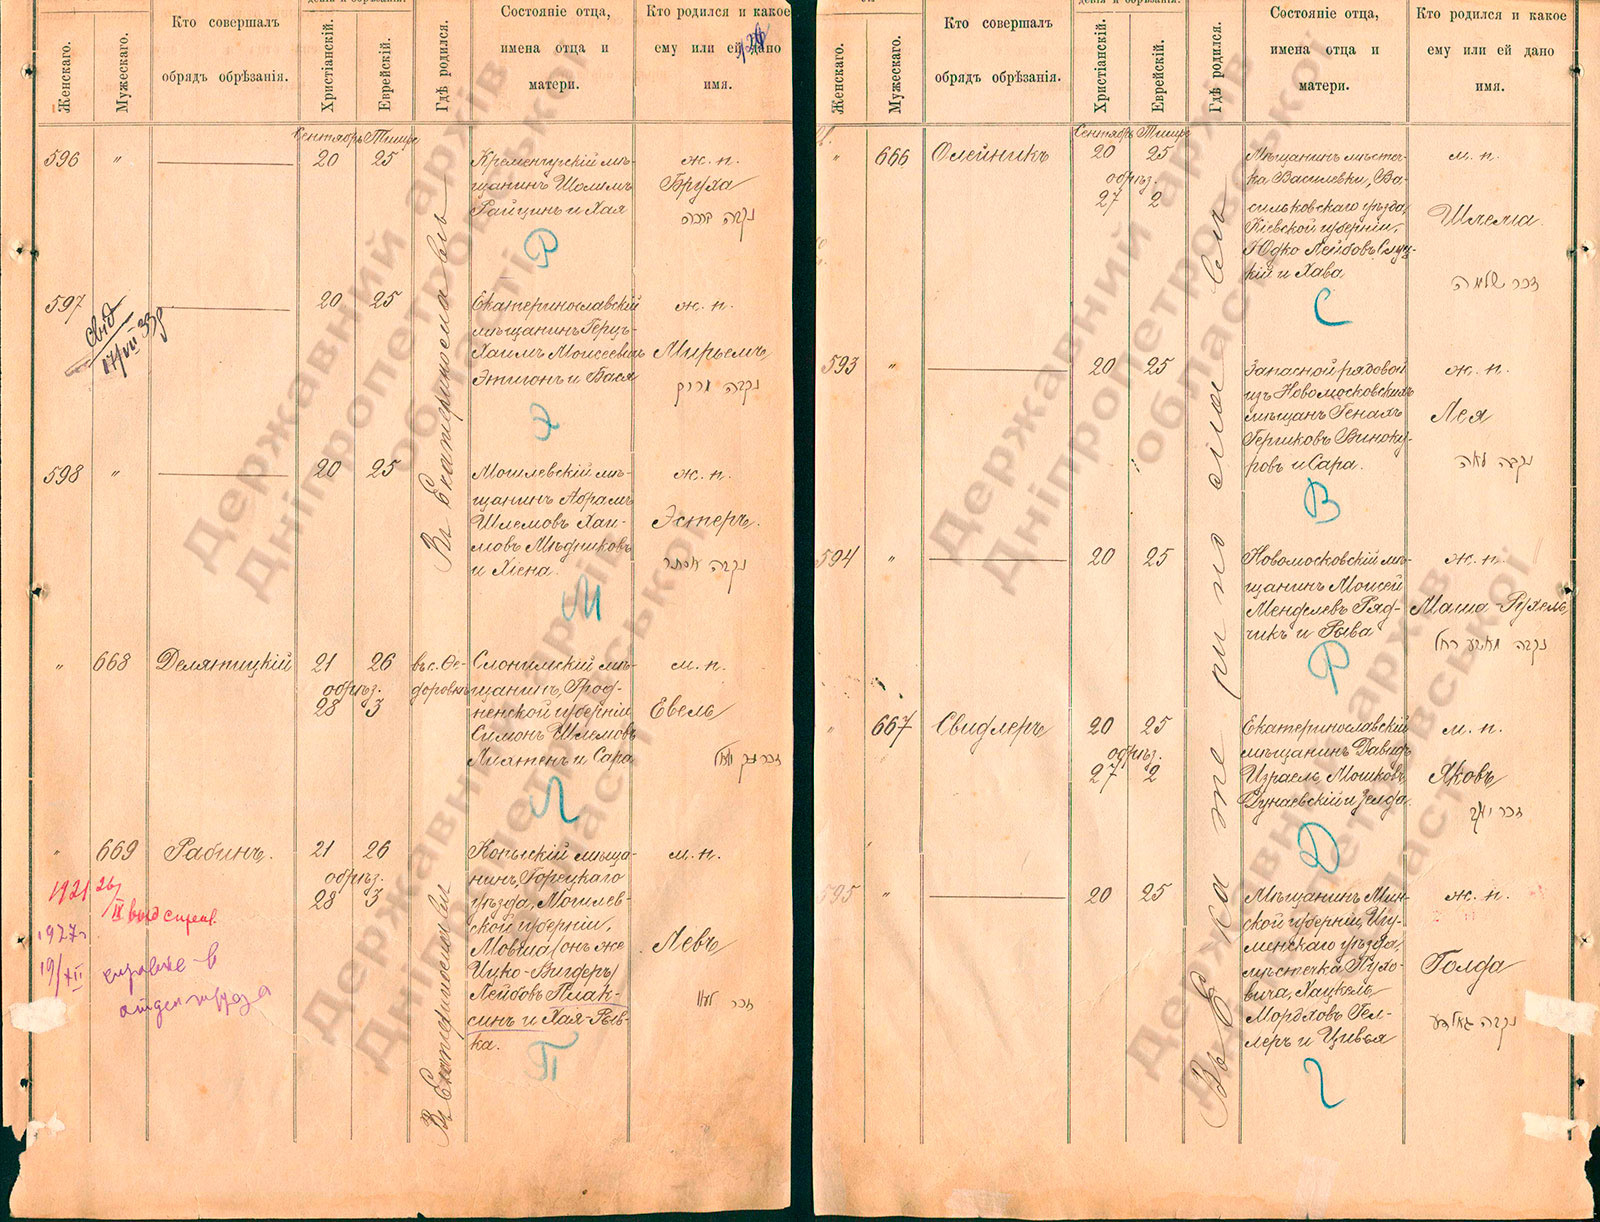 Женскаго.
Мужескаго.
Кто совершалъ
обрядъ обрѣзанія.
Христіанскій.
Еврейскій.
Гдѣ родился.
Состояніе отца,
имена отца и
матери.
Кто родился и какое
ему или ей дано
имя.
Сентябрь Тишре
596 " 20 25
Кременчугскій мѣ-
щанинъ Шолимъ
Райцинъ и Хая
ж. п.
Бруха
Р
597 20 25
17/VII 33 р
Екатеринославскій
мѣщанинъ Герцъ-
Хаимъ Моисеевичъ
Этигонъ и Бася
ж. п.
Мирьемъ
נקבה מרים
Э
598 " 20 25
Могилевскій мѣ-
щанинъ Абрамъ
Шлемовъ Хаи-
мовъ Мѣдниковъ
и Хіена.
ж. п.
Эстеръ.
נקבה אסתר
М
Въ Екатеринославлѣ
" 668 Делятицкій 21 26
обрѣз.
28 3
въ с. Ѳе-
доровкѣ
Слонимскій мѣ-
щанинъ, Грод-
ненской губерніи
Симонъ Шлемовъ
и Сара
м. п.
Евель
Л
" 669 Рабинъ. 21 26
обрѣз.
28 3
Копысскій мѣща-
нинъ, Горецкаго
уѣзда, Могилев-
ской губерніи,
Мовша (онъ же
Ицко-Вигдеръ)
Лейбовъ Плак-
синъ и Хая-Рыв-
ка.
м. п.
Левъ
П
Въ Екатеринославлѣ
1921 26/IX
1927 г
19/XII
справке в
Женскаго.
Мужескаго.
Кто совершалъ
обрядъ обрѣзанія.
Христіанскій.
Еврейскій.
Гдѣ родился.
Состояніе отца,
имена отца и
матери.
Кто родился и какое
ему или ей дано
имя.
Сентябрь Тишре
" 666 Олейникъ 20 25
обрѣз.
27 2
Мѣщанинъ мѣстеч-
ка Василевки, Ва-
сильковскаго уѣзда,
Кіевской губерніи,
Юдко Лейбовъ Слуц-
кій и Хава
м. п.
Шлема
זכר שלמה
С
593 " 20 25
Запасной рядовой
изъ Новомосковскихъ
мѣщанъ Генахъ
Гершковъ Виноку-
ровъ и Сара.
ж. п.
Лея
נקבה לאה
В
594 " 20 25
Новомосковскій мѣ-
щанинъ Моисей
Менделевъ Ряд-
чикъ и Рыва
ж. п.
Маша-Рухель
Р
" 667 Свидлеръ 20 25
обрѣз.
27 2
Екатеринославскій
мѣщанинъ Давидъ
Израель Мошковъ
Дунаевскій и Зелда
м. п.
Яковъ
זכר יעקב
Д
595 " 20 25
Мѣщанинъ Мин-
ской губерніи Игу-
менскаго уѣзда,
мѣстечка Пухо-
вича, Хацкель
Мордховъ Гел-
леръ и Цивья
ж. п.
Голда
Г
Въ Екатеринославлѣ
Державний архів
Дніпропетровської
області